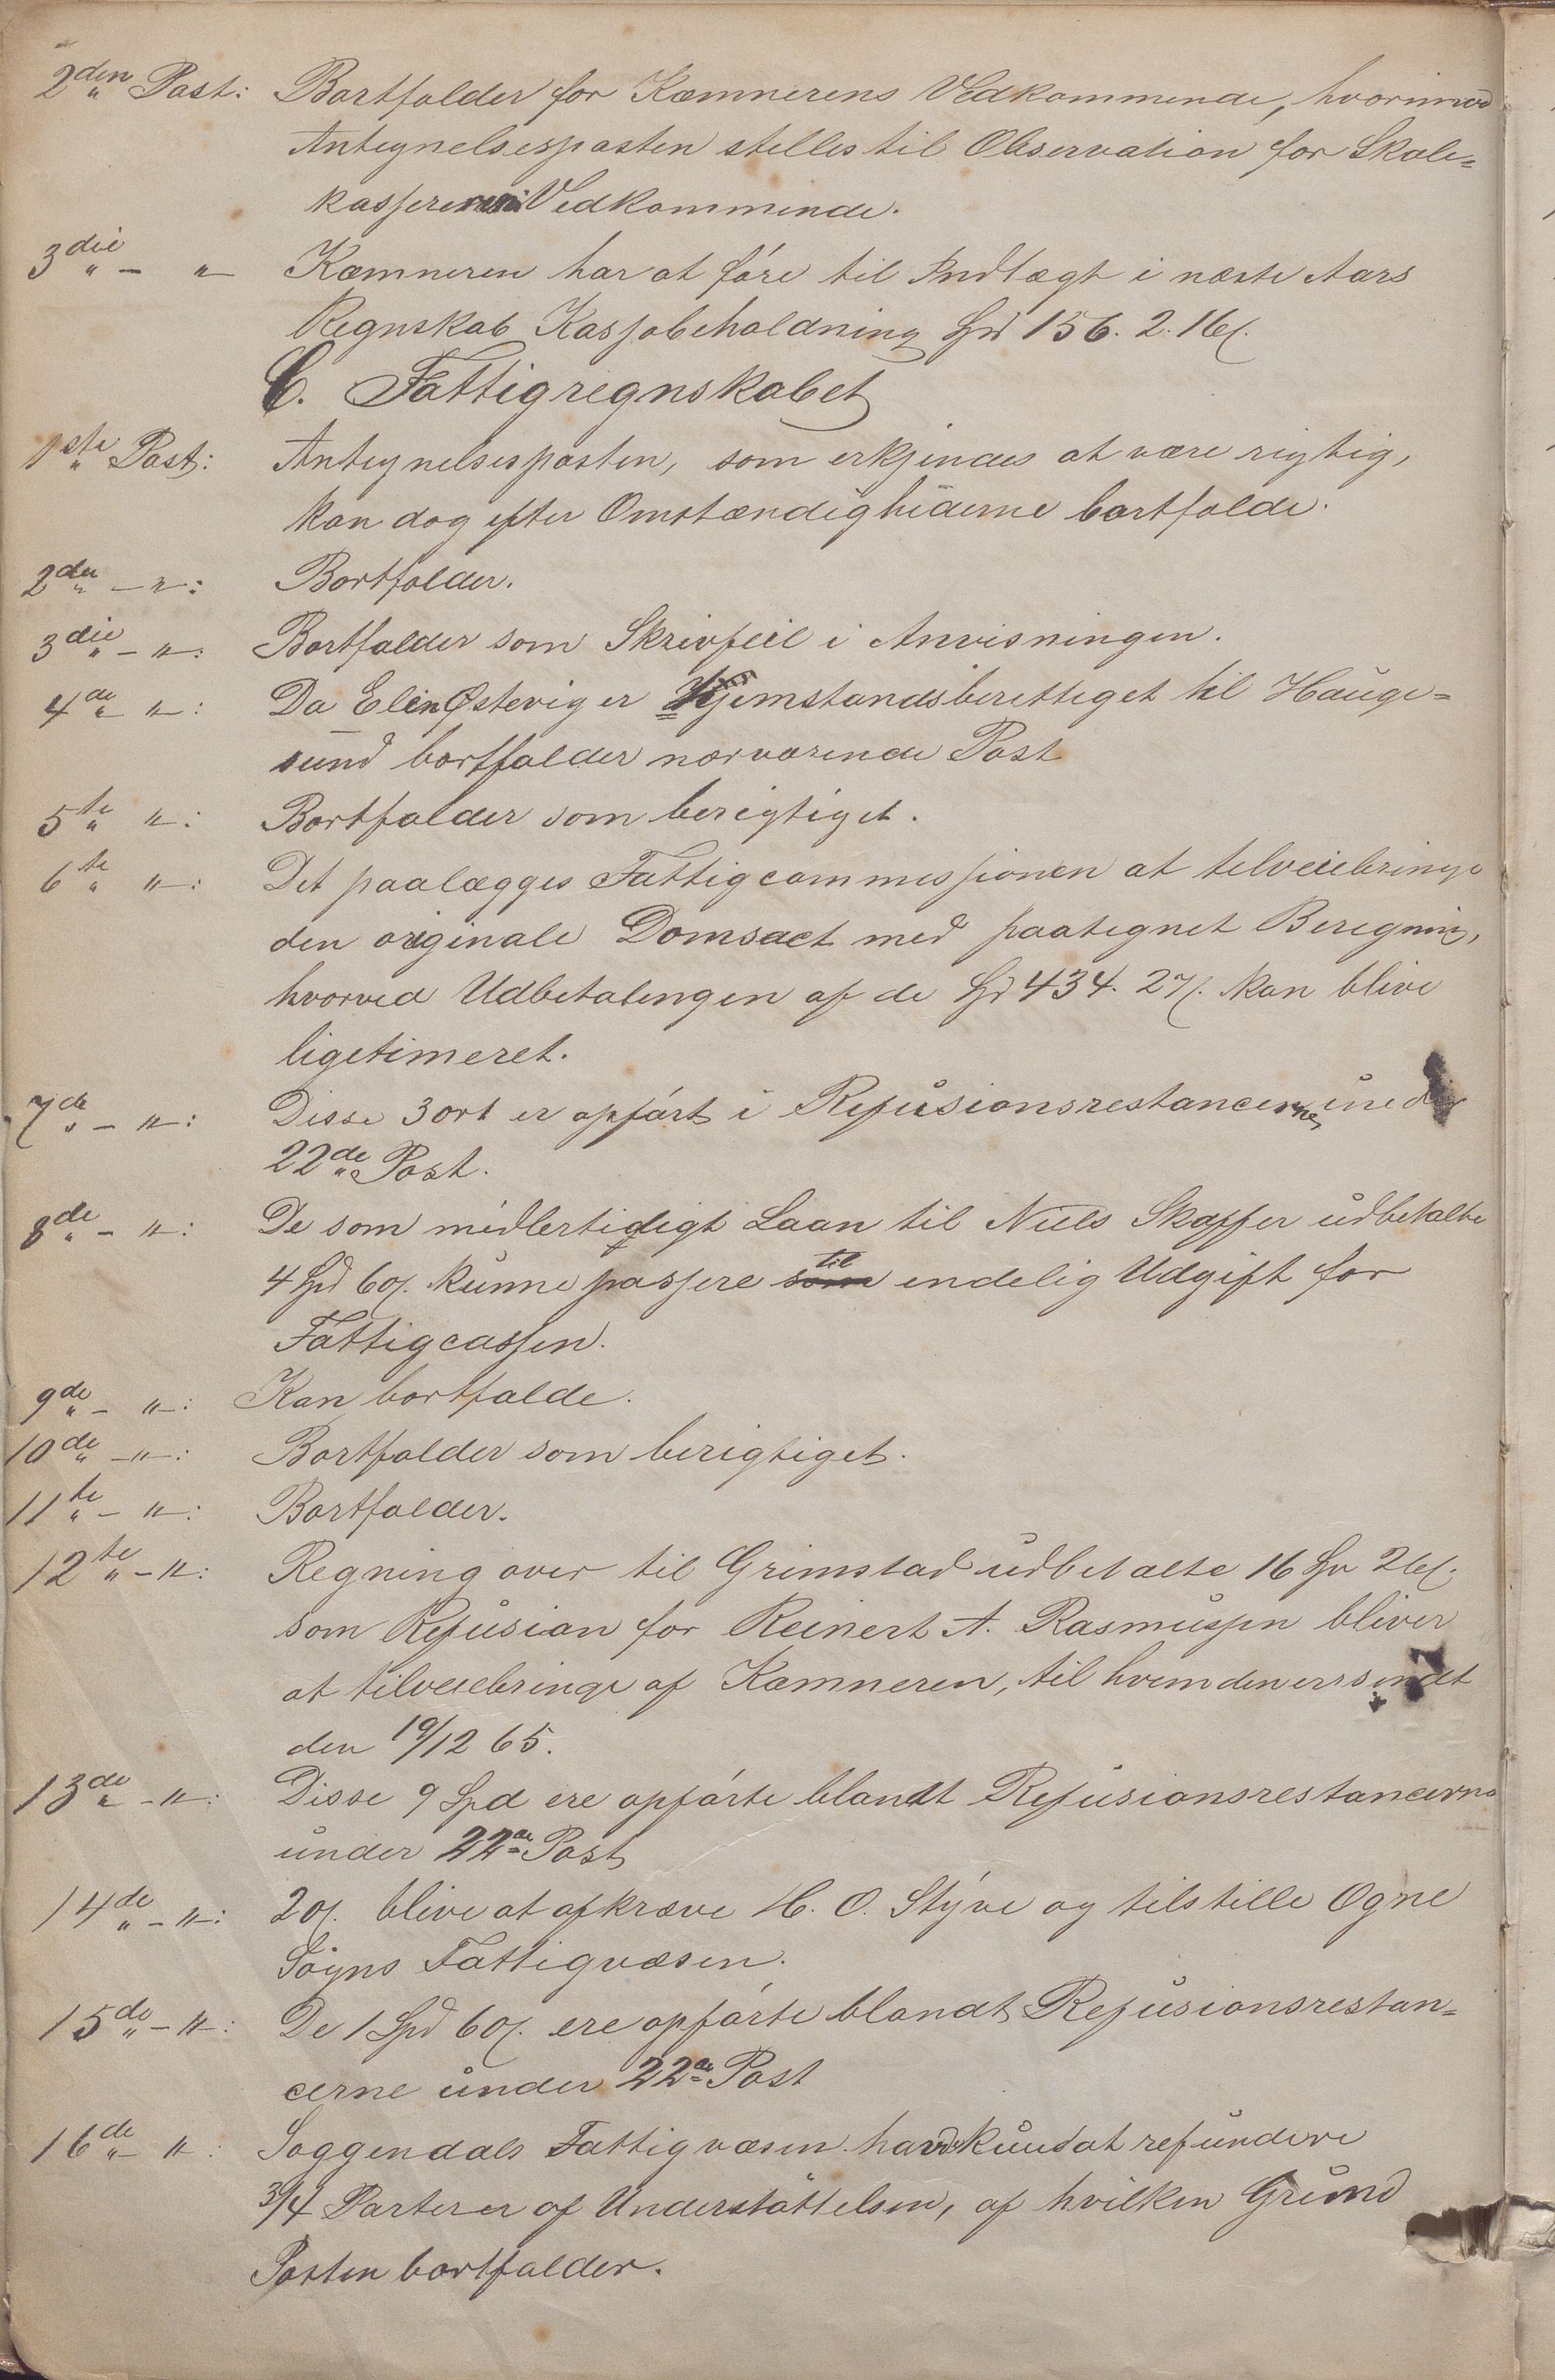 2den Post: Bortfalder for Kæmnerens Vedkommende, hvorimod
Antegnelsesposten stilles til Observation for Skole-
kassererens Vedkommende.
3die " — " Kæmneren har at føre til Indtægt i næste Aars
Regnskab Kassabeholdning Spd 156. 2. 16ß.
C. Fattigregnskabet
1ste Post: Antegnelsesposten, som erkjendes at være rigtig,
kan dog efter Omstændighederne bortfalde.
2den — " —: Bortfalder.
3die — " —: Bortfalder som Skrivfeil i Anvisningen.
4de — " —: Da Elen Østevig er Hjemstandsberettiget til Hauge-
sund bortfalder nærværende Post
5te " —: Bortfalder som berigtiget.
6te " —: Det paalægges Fattigcommissionen at tilveiebringe
den originale Domsact med paategnet Beregning,
hvorved Udbetalingen af de Spd 434. 27ß. kan blive
ligetimeret.
7de — " —: Disse 3 ort er opført i Refusionsrestancerne under
22de Post.
8de — " —: De som midlertidigt Laan til Niels Skaffer udbetalte
4 Spd 60ß. kunne passere som til endelig Udgift for
Fattigcassen.
9de — " —: Kan bortfalde.
10de — " —: Bortfalder som berigtiget.
11te — " —: Bortfalder.
12te — " —: Regning over til Grimstad udbetalte 16 Sp 26ß.
som Refusion for Reinert A. Rasmussen bliver
at tilveiebringe af Kæmneren, til hvem den er sendt
den 19/12 65.
13de — " —: Disse 9 Spd ere opførte blandt Refusionsrestancerne
under 22de Post
14de — " —: 20ß. blive at afkræve H. O. Styve og tilstille Ogne
Sogns Fattigvæsen.
15de — " —: De 1 Spd 60ß. ere opførte blandt Refusionsrestan-
cerne under 22de Post
16de — " —: Soggendals Fattigvæsen havde kuns at refundere
3/4 Parter af Understøttelsen, af hvilken Grund
Posten bortfalder.